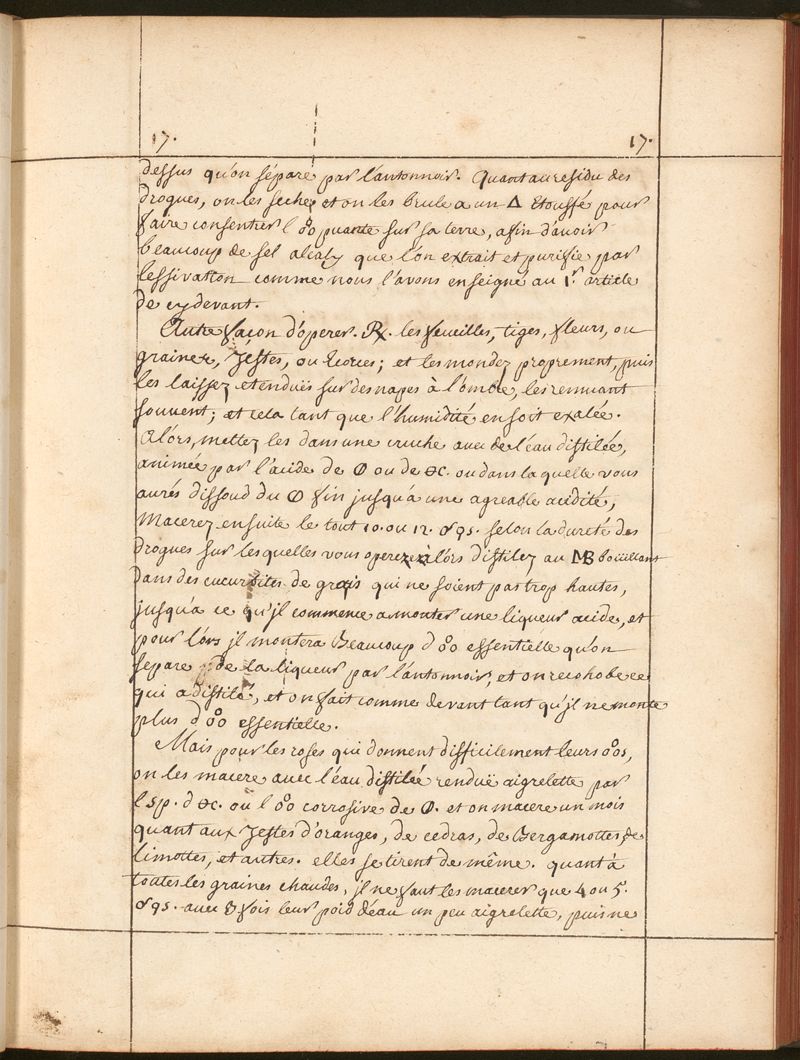 17. 17.
dessus qu'on sépare par l'antonnoir. Quant au residu des
drogues, on les seche, et on les brule a un △ étouffé pour
faire consentrer l'o°o puante sur sa terre, afin d'avoir
beaucoup de sel alcaly que l'on extrait et purifie par
lessivation comme nous l'avons enseigné au 1r. article
de cy devant.
Autre façon d'operer. ℞. les feueilles, tiges, fleurs, ou
graines, Zestes, ou Ecorces; et les mondez proprement, puis
les laissez etenduës sur des napes à l'ombre, les remuant
souvent; et cela tant que l'humidité en soit exalée.
Alors, mettez les dans une cruche avec de l'eau distilée,
animée par l'acide de Φ ou de ⊕c. ou dans laquelle vous
aurés dissoud du Φ fin jusqu'a une agreable acidité,
Macerez ensuite le tout 10. ou 12. 895. selon la dureté des
drogues sur lesquelles vous operez alors distilez au MB bouillant
dans des cucurbites de grais qui ne soient pas trop hautes,
jusqu'a ce qu'jl commence a monter une liqueur acide, et
pour lors jl montera Beaucoup d'o°o essentielle qu'on
separe de la liqueur par l'antonnoir, et on recohobe ce
qui a distilé, et on fait comme devant tant qu'jl ne monte
plus d'o°o essentielle.
Mais pour les roses qui donnent difficilement leurs o°os,
on les macere avec l'eau distilée renduë aigrelette par
l'sp. d ⊕c. ou l'o°o corrosive de Φ. et on macere un mois
quant aux Zestes d'oranges, de cedras, de Bergamottes, de
limottes, et autres. elles se tirent de même. quant à
toutes les graines chaudes, jl ne faut les macerer que 4 ou 5.
895. avec 8 fois leur poid d'eau un peu aigrelette, puis ne